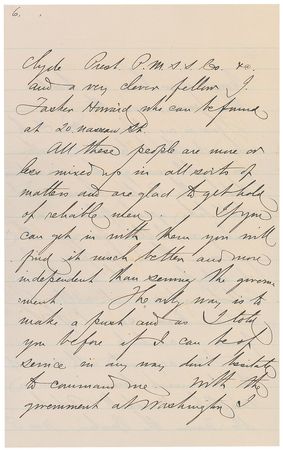 6.
Clyde Prest. P. M. S. S. Co. &c.
and a very clever fellow J.
Tasker Howard who can be found
at 20 Nassau St.
All these people are more or
less mixed up in all sorts of
matters and are glad to get hold
of reliable men. If you
can get in with them you will
find it much better and more
independent than serving the govern
ment. The only way is to
make a push and as I told
you before if I can be of
service in any way dont hesitate
to command me. With the
government at Washington I